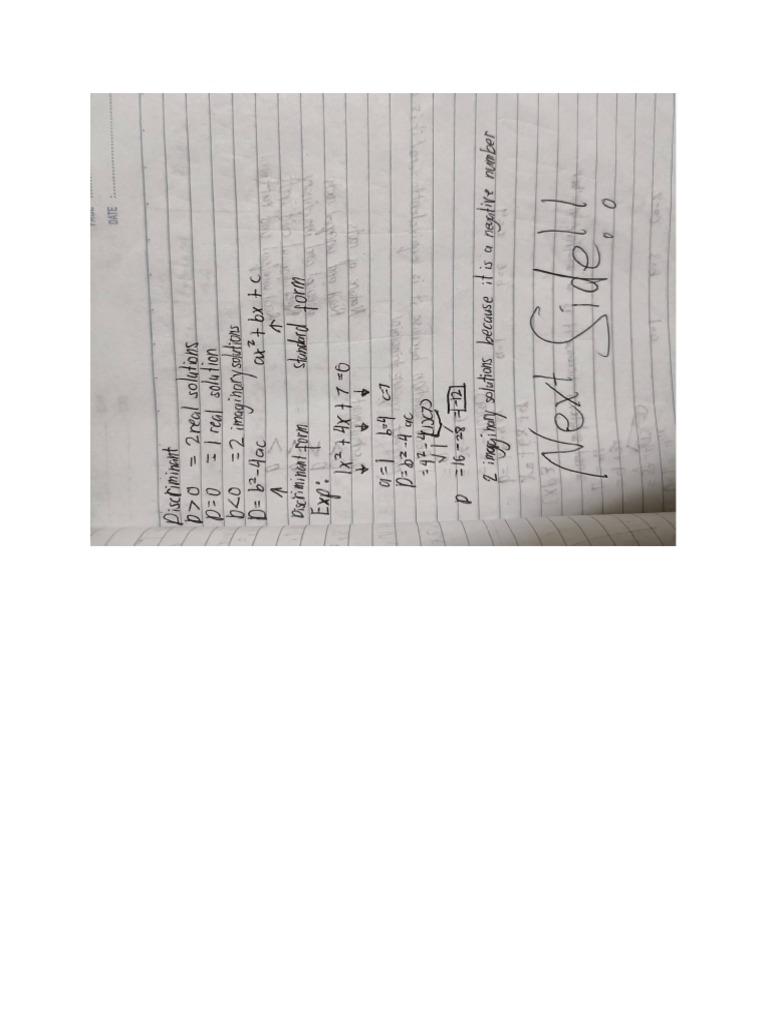 DATE :
Discriminant
D > 0 = 2 real solutions
D = 0 = 1 real solution
D < 0 = 2 imaginary solutions
D = b²-4ac ax² + bx + c
↑ ↑
Discriminant form standard form
Exp:
1x² + 4x + 7 = 0
↓ ↓ ↓
a = 1 b=4 c=7
D = b² - 4 ac
= 4² - 4(1)(7)
D = 16 - 28 = -12
2 imaginary solutions because it is a negative number
Next Side!!